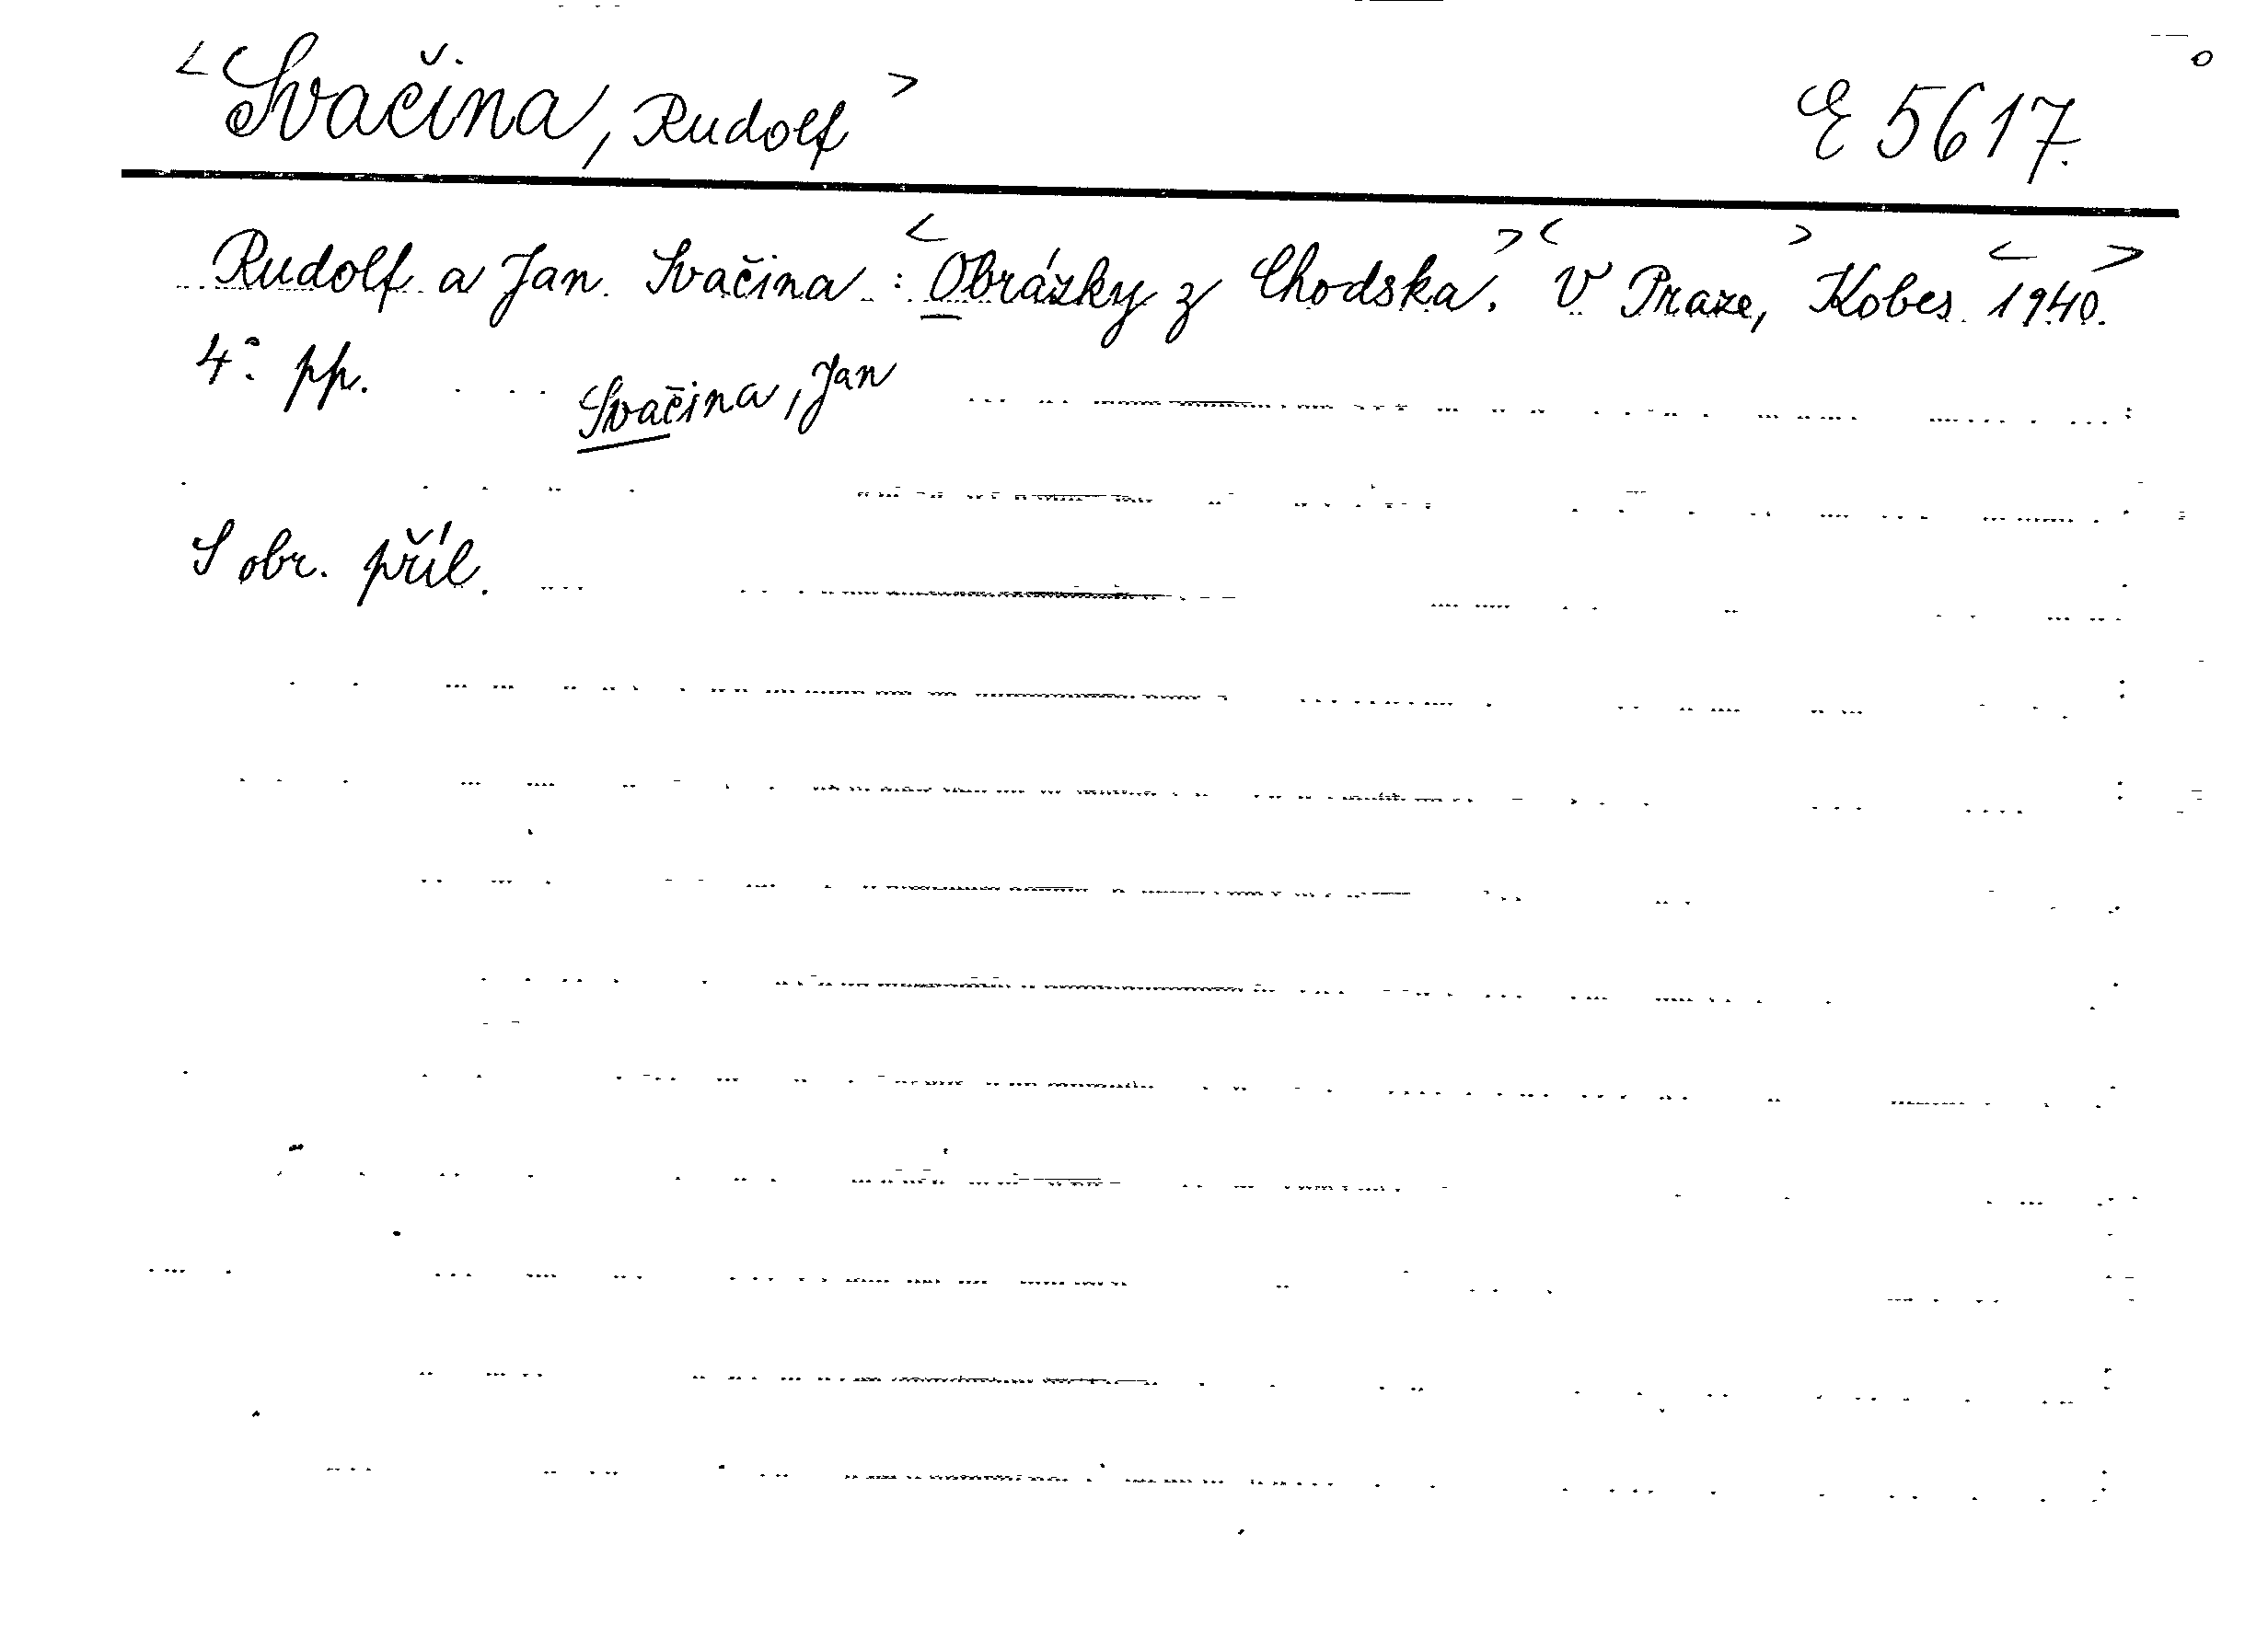 <Svačina, Rudolf> E 5617.
Rudolf a Jan Svačina : <Obrázky z Chodska.> <V Praze,> Kobes <1940.>
4° pp.
Svačina, Jan
S obr. příl.